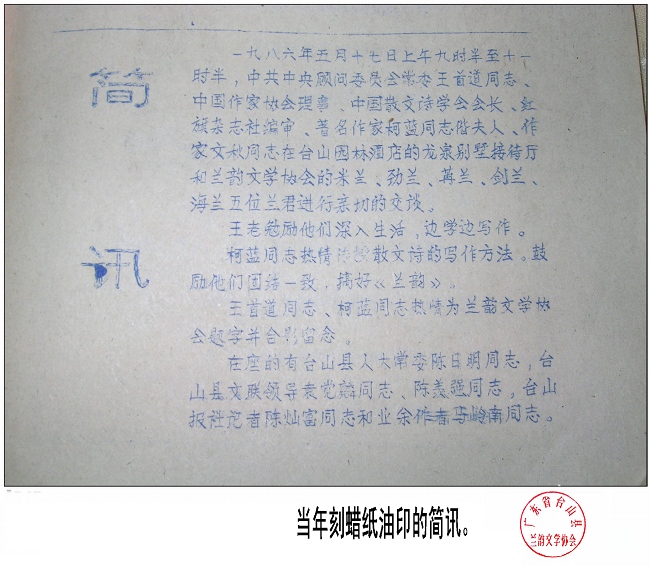 简讯
一九八六年五月十七日上午九时半至十一
时半，中共中央顾问委员会常委王首道同志、
中国作家协会理事、中国散文诗学会会长、红
旗杂志社编审、著名作家柯蓝同志偕夫人、作
家文秋同志在台山园林酒店的龙泉别墅接待厅
和兰韵文学协会的米兰、劲兰、苒兰、剑兰、
海兰五位兰君进行亲切的交谈。
王老勉励他们深入生活，边学边写作。
柯蓝同志热情传授散文诗的写作方法。鼓
励他们团结一致，搞好《兰韵》。
王首道同志、柯蓝同志热情为兰韵文学协
会题字并合影留念。
在座的有台山县人大常委陈日明同志，台
山县文联领导袁党麟同志、陈羡强同志，台山
报社记者陈灿富同志和业余作者马岭南同志。
当年刻蜡纸油印的简讯。
广东省台山县
兰韵文学协会